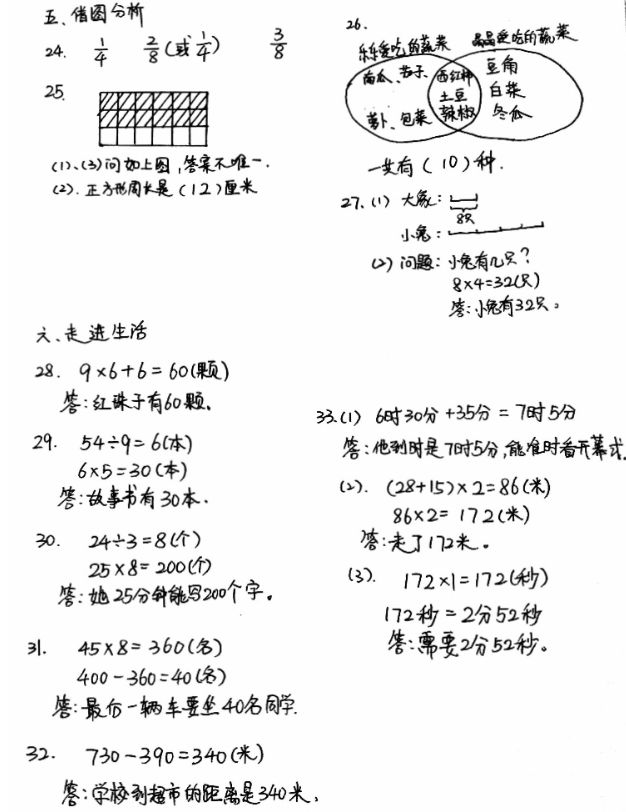 五、借图分析
24. 1/4 2/8(或1/4) 3/8
25.
(1)、(3)问如上图,答案不唯一.
(2). 正方形周长是(12)厘米
26.
乐乐爱吃的蔬菜 晶晶爱吃的蔬菜
南瓜、茄子 西红柿 豆角
土豆 白菜
萝卜、包菜 辣椒 冬瓜
一共有(10)种.
27. (1) 大象:
8只
小兔:
(2) 问题: 小兔有几只?
8×4=32(只)
答:小兔有32只。
六、走进生活
28. 9×6+6=60(颗)
答:红珠子有60颗。
29. 54÷9=6(本)
6×5=30(本)
答:故事书有30本.
30. 24÷3=8(个)
25×8=200(个)
答:她25分钟能写200个字。
31. 45×8=360(名)
400-360=40(名)
答:最后一辆车要坐40名同学.
32. 730-390=340(米)
答:学校到超市的距离是340米.
33.(1) 6时30分+35分=7时5分
答:他到时是7时5分,能准时看开幕式.
(2). (28+15)×2=86(米)
86×2=172(米)
答:走了172米。
(3). 172×1=172(秒)
172秒=2分52秒
答:需要2分52秒。